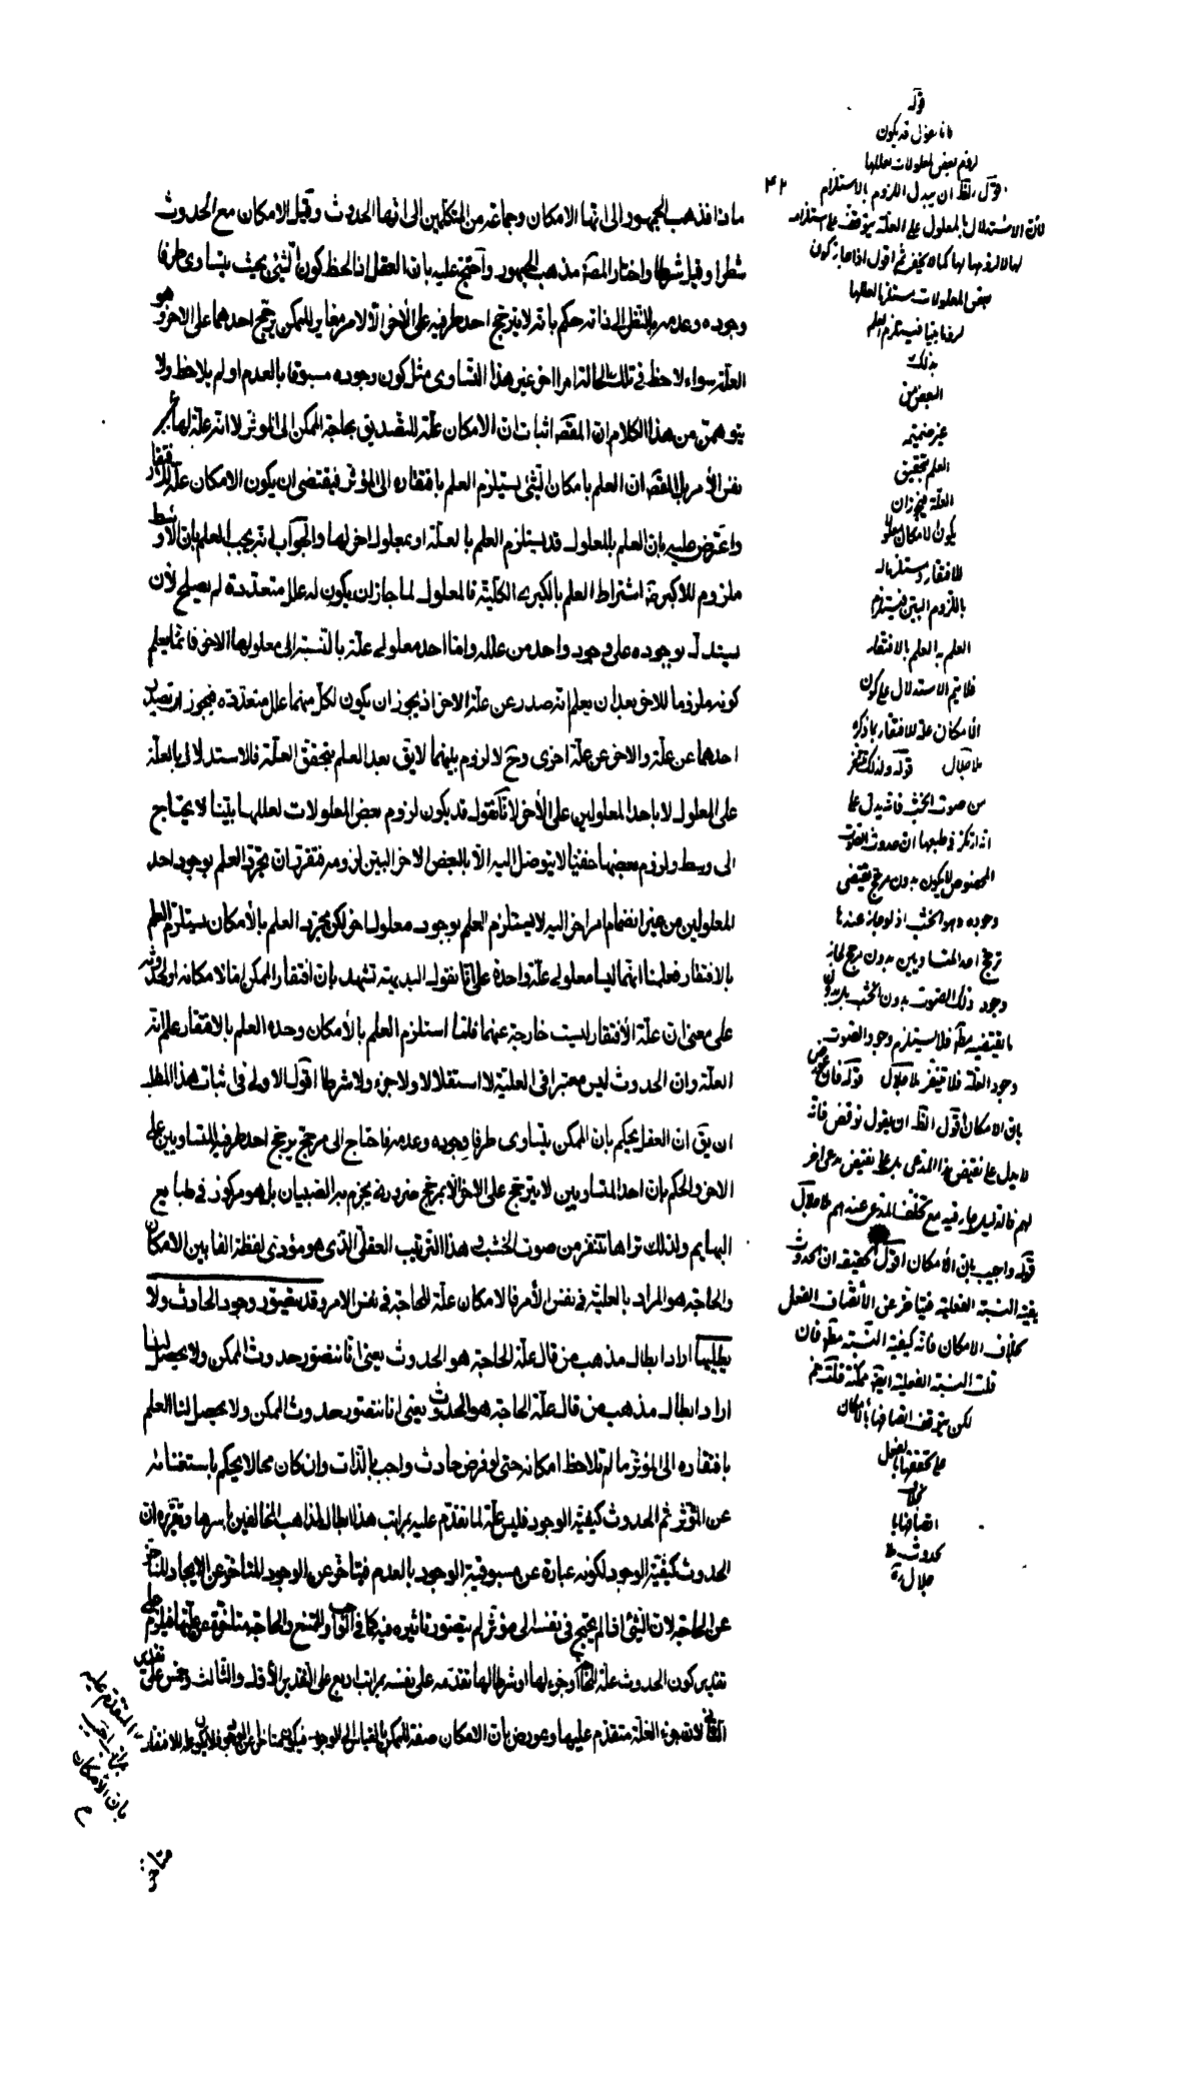 ماذا فذهب الجمهور الى انها الامكان وجماعة من المتكلمين الى انها الحدوث وقيل الامكان مع الحدوث
شطرا وقيل شرطا واختار المصّ مذهب الجمهور واحتج عليه بان العقل اذا لحظ كون الشئ بحيث يتساوى طرفا
وجوده وعدمه بالنظر الى ذاته حكم بانه لا يترجح احد طرفيه على الاخر الا لامر مغاير للممكن يرجح احدهما على الاخر وهو
العلة سواء لاحظ في تلك الحالة امرا اخر غير هذا التساوى مثل كون وجوده مسبوقا بالعدم او لم يلاحظ ولا
يتوهمن من هذا الكلام ان المقصّ اثبات ان الامكان علة للتصديق بحاجة الممكن الى المؤثر لا انه علة لها بحسب
نفس الأمر بل المقصّ ان العلم بامكان الشئ يستلزم العلم بافتقاره الى المؤثر فيقتضى ان يكون الامكان علة للافتقار
واعترض عليه بان العلم بالمعلول قد يستلزم العلم بالعلة او بمعلول اخر لها والجواب انه يجب العلم بان الاوسط
ملزوم للاكبر اشتراط العلم بالكبرى الكلية فالمعلول لما جاز ان يكون له علل متعددة لم يصلح لأن
يستدل بوجوده على وجود واحد من علله واما احد معلولى علة بالنسبة الى معلولها الاخر فانما يعلم
كونه ملزوما للاخر بعد ان يعلم انه صدر عن علة الاخر اذ يجوز ان يكون لكل منهما علل متعددة فيجوز ان يصدر
احدهما عن علة والاخر عن علة اخرى وح لا لزوم بينهما لا يق بعد العلم بتحقق العلة فالاستدلال بالعلة
على المعلول لا باحد المعلولين على الأخر لانا نقول قد يكون لزوم بعض المعلولات لعللها بينا لا يحتاج
الى وسط ولزوم بعضها خفيا لا يتوصل اليه الا بالبعض الاخر البين لزومه فتقرر ان مجرد العلم بوجود احد
المعلولين من غير انضمام امر اخر اليه لا يستلزم العلم بوجود معلول اخر لكن مجرد العلم بالأمكان يستلزم العلم
بالافتقار فعلمنا انهما ليسا معلولى علة واحدة على انا نقول البديهة تشهد بان افتقار الممكن اما لامكانه او لحدوثه
على معنى ان علة الأفتقار ليست خارجة عنهما فلما استلزم العلم بالأمكان وحده العلم بالافتقار علم انه
العلة وان الحدوث ليس معتبرا فى العلية لا استقلالا ولا جزء ولا شرطا اقول الاولى فى اثبات هذا المطلب
ان يق ان العقل يحكم بان الممكن يتساوى طرفا وجوده وعدمه فاحتاج الى مرجح يرجح احد طرفيه المتساويين على
الاخر والحكم بان احد المتساويين لا يترجح على الاخر الا بمرجح ضرورية يجزم به الصبيان بل هو مركوز فى طبايع
البهايم ولذلك تراها تنفر من صوت الخشب فى هذا الترتيب العقلى الذى هو مؤدى لفظة الفا بين الامكان
والحاجة هو المراد بالعلية فى نفس الأمر فالامكان علة للحاجة فى نفس الامر وقد يتصور وجود الحادث ولا
يطلبها اراد ابطال مذهب من قال علة الحاجة هو الحدوث يعنى انا نتصور حدوث الممكن ولا يحصل لنا
اراد ابطال مذهب من قال علة الحاجة هو الحدوث يعنى انا نتصور حدوث الممكن ولا يحصل لنا العلم
بافتقاره الى المؤثر ما لم نلاحظ امكانه حتى لو فرض حادث واجب بالذات وان كان محالا يحكم باستغنائه
عن المؤثر ثم الحدوث كيفية الوجود فليس علة لما تقدم عليه بمراتب هذا ابطال لمذاهب المخالفين باسرها وتقريره ان
الحدوث كيفية الوجود لكونه عبارة عن مسبوقية الوجود بالعدم فيتاخر عن الوجود المتاخر عن الايجاد المتاخر
عن الحاجة لان الشئ اذا لم يحتج فى نفسه الى مؤثر لم يتصور تاثيره فيه كما فى الواجب والممتنع والحاجة متاخرة عن علتها فيلزم على
تقدير كون الحدوث علة للحاجة او جزء لها او شرطا لها تقدمه على نفسه بمراتب اربع على التقدير الأول والثالث وخمس على تقدير
الثانى لان جزء العلة متقدم عليها وعورض بأن الامكان صفة للممكن بالقياس الى الوجود فيكون متاخرا عن الوجود فلا يكون علة للافتقار
المتقدم عليه
بمراتب اجيب
بان الأمكان
م
متا
٤٢
قوله
فانا نقول قد يكون
لزوم بعض المعلولات لعللها
اقول الظ ان يبدل اللزوم بالاستلزام
لأن الاستدلال بالمعلول على العلة يتوقف على استلزامه
لها لا لزومها لها كما لا يخفى ثم اقول اذا جاز كون
بعض المعلولات مستلزما لعللها
لزوما بينا فيستلزم العلم
بذلك
البعض من
غير ضميمة
العلم بتحقيق
العلة فيجوز ان
يكون الامكان معلولا
للافتقار ومستلزما له
باللزوم البين فيستلزم
العلم به العلم بالافتقار
فلا يتم الاستدلال على كون
الأمكان علة للافتقار بما ذكره
ملا جلال قوله ولذلك تنفر
من صوت الخشب فانه يدل على
انه ارتكز فى طبعها ان حدوث الصوت
المخصوص لا يكون بدون مرجح يقتضى
وجوده وهو الخشب اذ لو جاز عندها
ترجح احد المتساويين بدون مرجح لجاز
وجود ذلك الصوت بدون الخشب بل بدون
ما يقتضيه مط فلا يستلزم وجود الصوت
وجود العلة فلا تنفر ملا جلال قوله وعورض
بان الامكان اقول الظ ان يقول نوقض فانه
لا يدل على نقيض هذا المدعى بل على نقيض مدعى اخر
لهم فالدليل جار فيه مع تخلف المدعى عنه ملا جلال
قوله واجيب بان الأمكان اقول تحقيقه ان الحدوث
كيفية النسبة الفعلية فيتاخر عن الأتصاف بالفعل
بخلاف الامكان فانه كيفية النسبة مط فان
قلت النسبة الفعلية ايضا ممكنة قلت نعم
لكن يتوقف اتصافها بالأمكان
على تحققها بالفعل
بخلاف
اتصافها با
لحدوث ملا
جلال ره